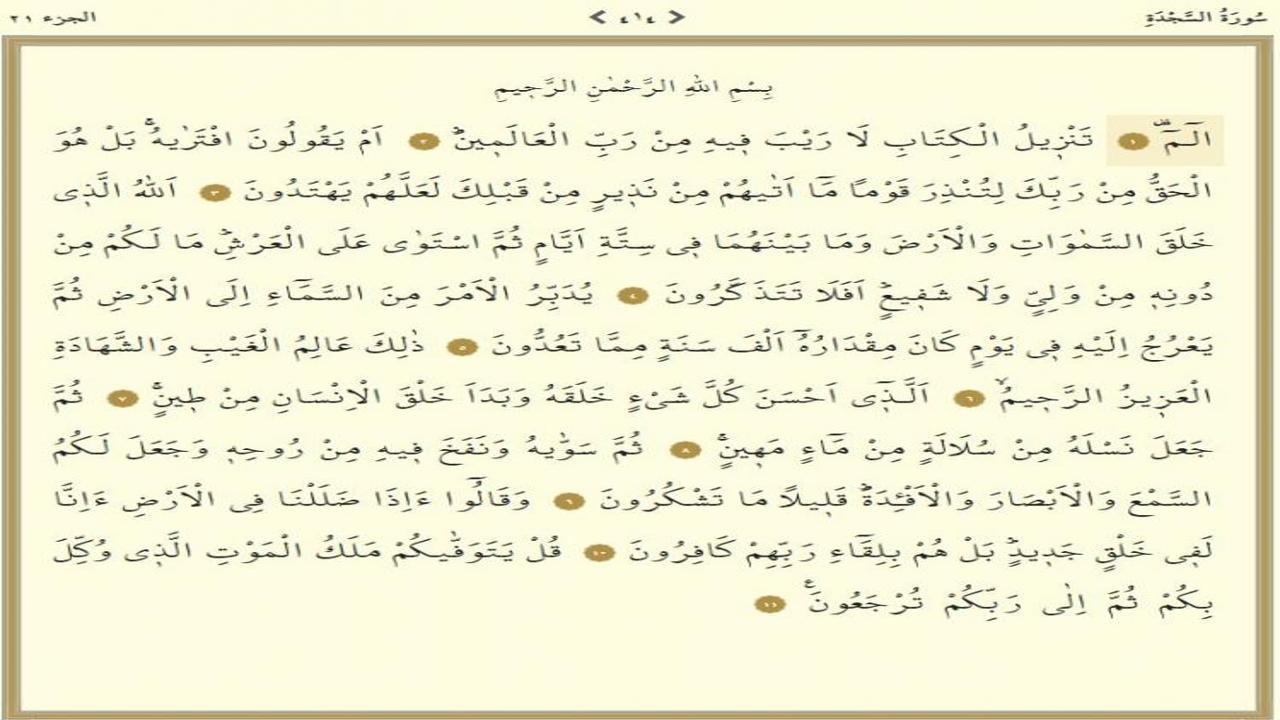 سُورَةُ السَّجْدَةِ < ٤١٤ > الجزء ٢١
بِسْمِ اللهِ الرَّحْمٰنِ الرَّحٖيمِ
الٓمٓۜ ١ تَنْزٖيلُ الْكِتَابِ لَا رَيْبَ فٖيهِ مِنْ رَبِّ الْعَالَمٖينَؕ ٢ اَمْ يَقُولُونَ افْتَرٰيهُۚ بَلْ هُوَ
الْحَقُّ مِنْ رَبِّكَ لِتُنْذِرَ قَوْمًا مَٓا اَتٰيهُمْ مِنْ نَذٖيرٍ مِنْ قَبْلِكَ لَعَلَّهُمْ يَهْتَدُونَ ٣ اَللهُ الَّذٖى
خَلَقَ السَّمٰوَاتِ وَالْاَرْضَ وَمَا بَيْنَهُمَا فٖى سِتَّةِ اَيَّامٍ ثُمَّ اسْتَوٰى عَلَى الْعَرْشِؕ مَا لَكُمْ مِنْ
دُونِهٖ مِنْ وَلِىٍّ وَلَا شَفٖيعٍؕ اَفَلَا تَتَذَكَّرُونَ ٤ يُدَبِّرُ الْاَمْرَ مِنَ السَّمَٓاءِ اِلَى الْاَرْضِ ثُمَّ
يَعْرُجُ اِلَيْهِ فٖى يَوْمٍ كَانَ مِقْدَارُهُٓ اَلْفَ سَنَةٍ مِمَّا تَعُدُّونَ ٥ ذٰلِكَ عَالِمُ الْغَيْبِ وَالشَّهَادَةِ
الْعَزٖيزُ الرَّحٖيمُۙ ٦ اَلَّذٖٓى اَحْسَنَ كُلَّ شَىْءٍ خَلَقَهُ وَبَدَاَ خَلْقَ الْاِنْسَانِ مِنْ طٖينٍۚ ٧ ثُمَّ
جَعَلَ نَسْلَهُ مِنْ سُلَالَةٍ مِنْ مَٓاءٍ مَهٖينٍۚ ٨ ثُمَّ سَوّٰيهُ وَنَفَخَ فٖيهِ مِنْ رُوحِهٖ وَجَعَلَ لَكُمُ
السَّمْعَ وَالْاَبْصَارَ وَالْاَفْـِٔدَةَؕ قَلٖيلًا مَا تَشْكُرُونَ ٩ وَقَالُٓوا ءَاِذَا ضَلَلْنَا فِى الْاَرْضِ ءَاِنَّا
لَفٖى خَلْقٍ جَدٖيدٍؕ بَلْ هُمْ بِلِقَٓاءِ رَبِّهِمْ كَافِرُونَ ١٠ قُلْ يَتَوَفّٰيكُمْ مَلَكُ الْمَوْتِ الَّذٖى وُكِّلَ
بِكُمْ ثُمَّ اِلٰى رَبِّكُمْ تُرْجَعُونَࣖ ١١